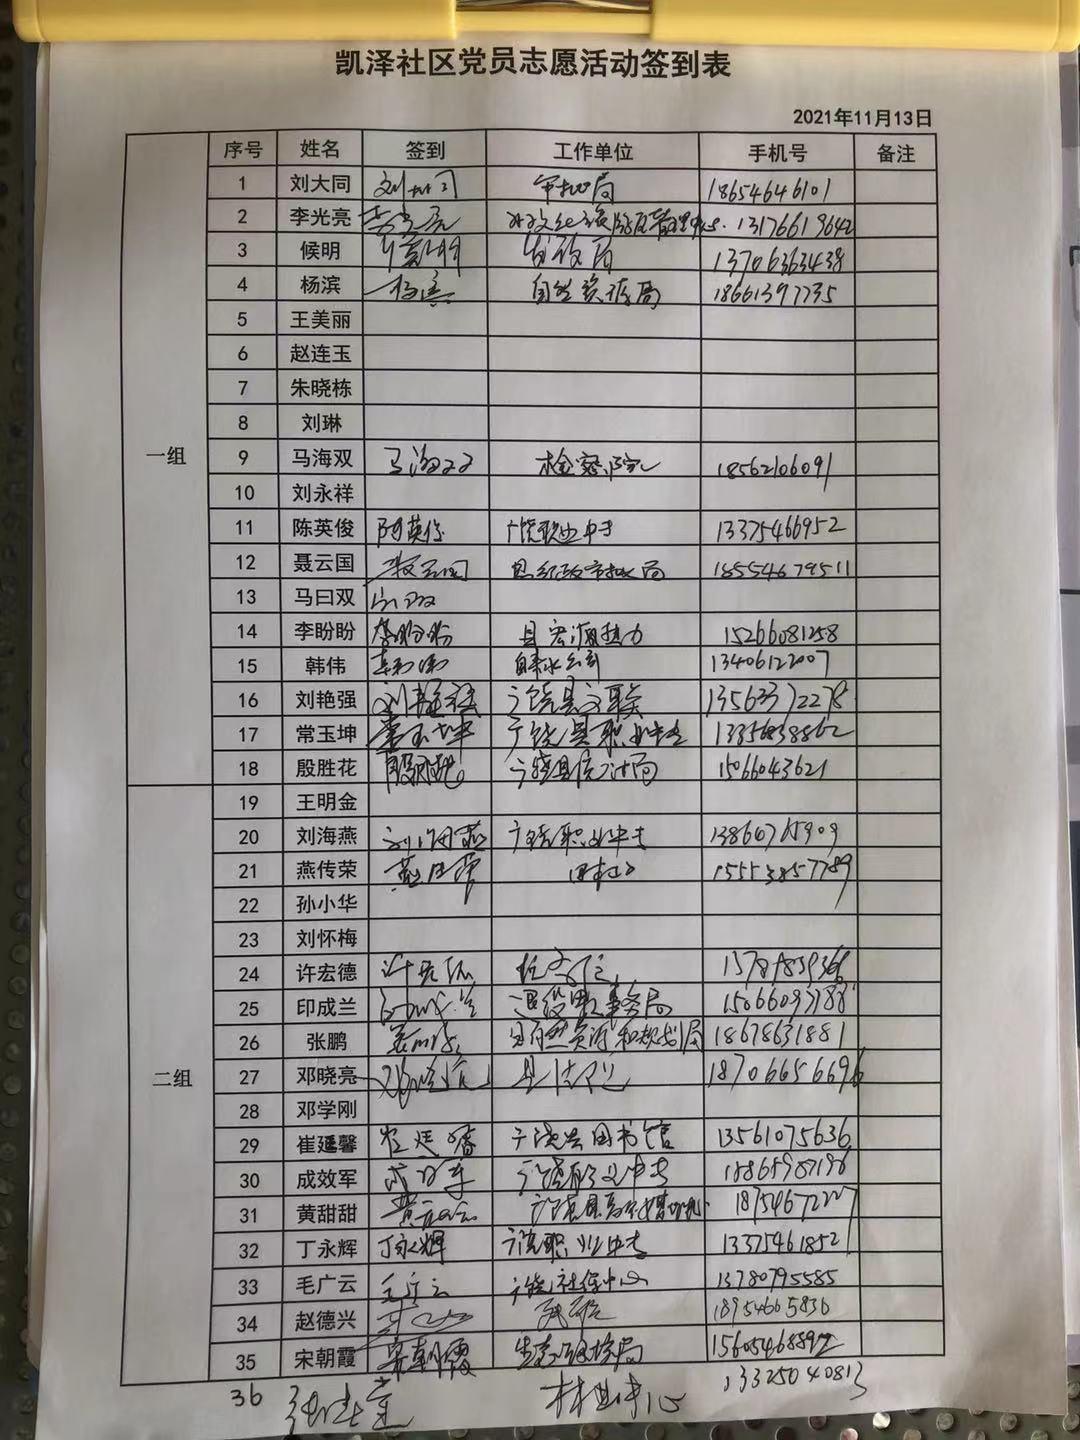 凯泽社区党员志愿活动签到表
2021年11月13日
序号 姓名 签到 工作单位 手机号 备注
一组
1 刘大同 刘大同 审批局 18654646101
2 李光亮 李光亮 13176619642
3 候明 发改局 13706363438
4 杨滨 杨滨 自然资源局 18661397735
5 王美丽
6 赵连玉
7 朱晓栋
8 刘琳
9 马海双 马海双 检察院 18562106091
10 刘永祥
11 陈英俊 陈英俊 广饶职业中专 13375466952
12 聂云国 聂云国 县行政审批局 18554679511
13 马曰双
14 李盼盼 李盼盼 县宏源热力 15266081258
15 韩伟 韩伟 自来水公司 13406122007
16 刘艳强 刘艳强 广饶县文联 13563372278
17 常玉坤 常玉坤 广饶县职业中专
18 殷胜花 殷胜花 15066043621
二组
19 王明金
20 刘海燕 刘海燕 广饶职业中专
21 燕传荣 15553857789
22 孙小华
23 刘怀梅
24 许宏德 许宏德
25 印成兰 印成兰 退役军人事务局 15066097188
26 张鹏 张鹏 县自然资源和规划局 18678631881
27 邓晓亮 邓晓亮 县法院 18706656696
28 邓学刚
29 崔延馨 崔延馨 广饶县图书馆 13561075636
30 成效军 成效军 广饶职业中专
31 黄甜甜 18954672227
32 丁永辉 丁永辉 广饶职业中专 13375461852
33 毛广云 毛广云 广饶社保中心 13780795585
34 赵德兴 残联 18954665836
35 宋朝霞 宋朝霞 生态环境局
36 林业中心 13325040813